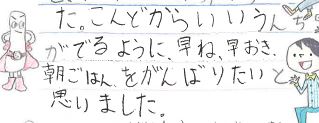 た。こんどからいいうんち
がでるように、早ね、早おき、
朝ごはん、をがんばりたいと
思りました。